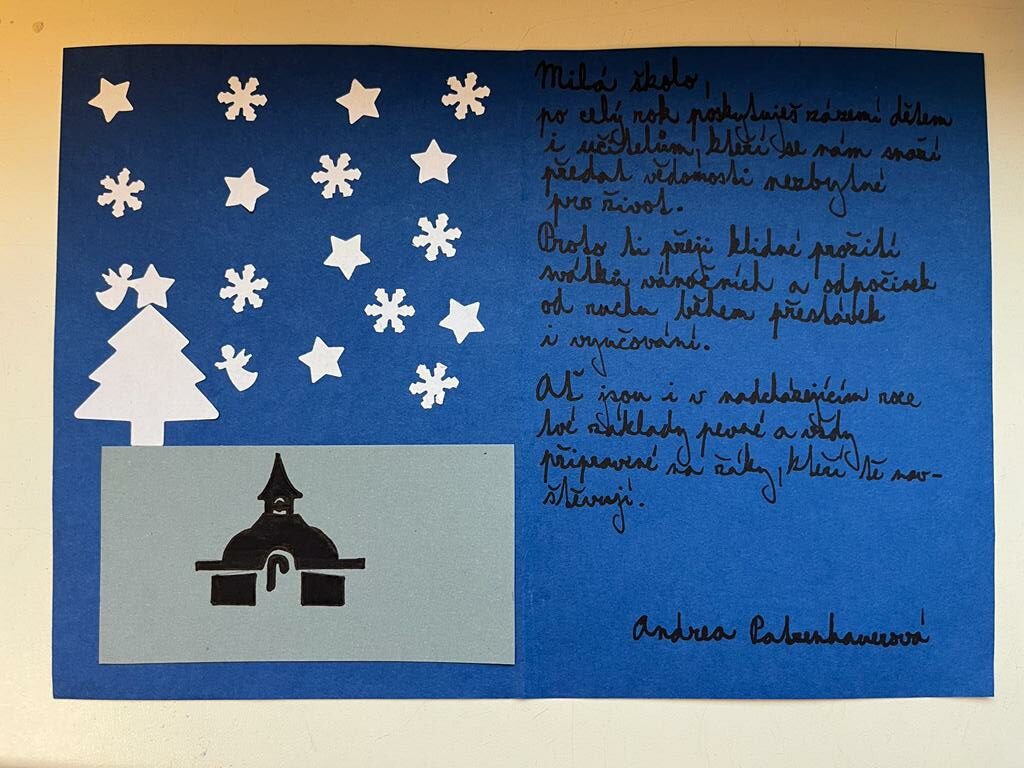 Milá školo,
po celý rok poskytuješ zázemí dětem
i učitelům, kteří se nám snaží
předat vědomosti nezbytné
pro život.
Proto ti přeji klidné prožití
svátků vánočních a odpočinek
od ruchu během přestávek
i vyučování.
Ať jsou i v nadcházejícím roce
tvé základy pevné a vždy
připravené na žáky, kteří tě nav-
štěvují.
Andrea Patzenhauerová